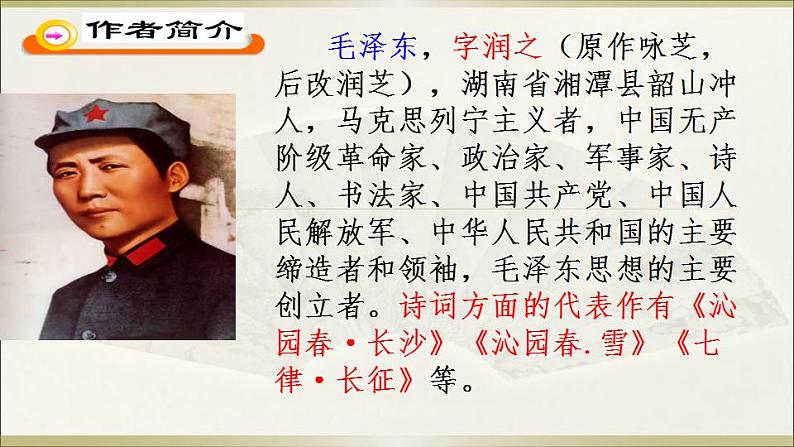 作者简介
毛泽东，字润之（原作咏芝，
后改润芝），湖南省湘潭县韶山冲
人，马克思列宁主义者，中国无产
阶级革命家、政治家、军事家、诗
人、书法家、中国共产党、中国人
民解放军、中华人民共和国的主要
缔造者和领袖，毛泽东思想的主要
创立者。诗词方面的代表作有《沁
园春·长沙》《沁园春.雪》《七
律·长征》等。